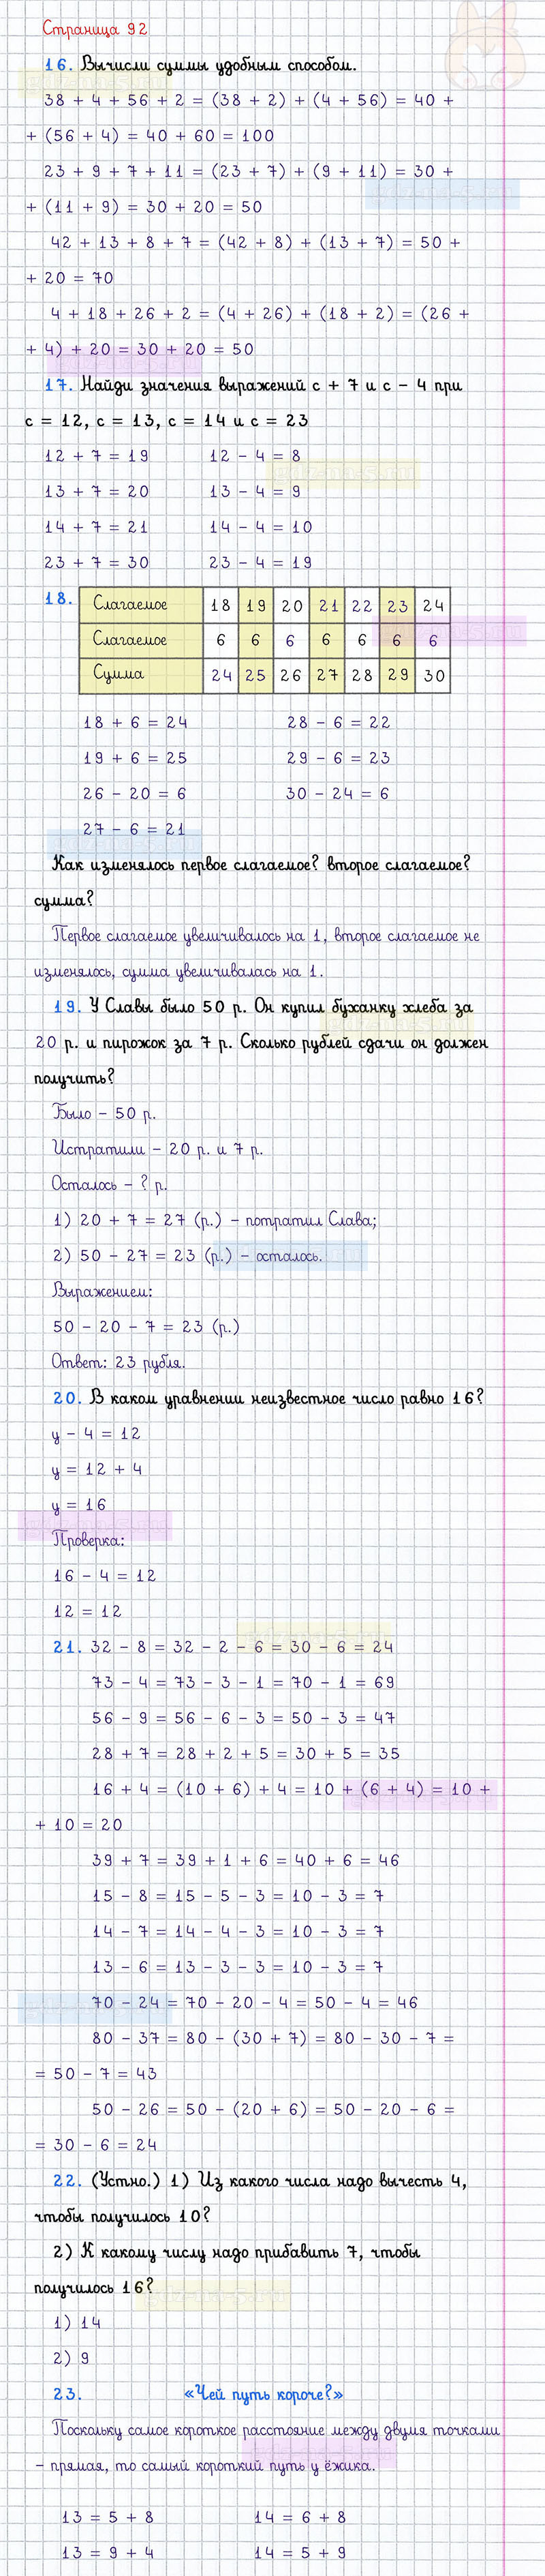 Страница 92
16. Вычисли суммы удобным способом.
38 + 4 + 56 + 2 = (38 + 2) + (4 + 56) = 40 +
+ (56 + 4) = 40 + 60 = 100
23 + 9 + 7 + 11 = (23 + 7) + (9 + 11) = 30 +
+ (11 + 9) = 30 + 20 = 50
42 + 13 + 8 + 7 = (42 + 8) + (13 + 7) = 50 +
+ 20 = 70
4 + 18 + 26 + 2 = (4 + 26) + (18 + 2) = (26 +
+ 4) + 20 = 30 + 20 = 50
17. Найди значения выражений с + 7 и с - 4 при
с = 12, с = 13, с = 14 и с = 23
12 + 7 = 19 12 - 4 = 8
13 + 7 = 20 13 - 4 = 9
14 + 7 = 21 14 - 4 = 10
23 + 7 = 30 23 - 4 = 19
18. Слагаемое 18 19 20 21 22 23 24
Слагаемое 6 6 6 6 6 6 6
Сумма 24 25 26 27 28 29 30
18 + 6 = 24 28 - 6 = 22
19 + 6 = 25 29 - 6 = 23
26 - 20 = 6 30 - 24 = 6
27 - 6 = 21
Как изменялось первое слагаемое? второе слагаемое?
сумма?
Первое слагаемое увеличивалось на 1, второе слагаемое не
изменялось, сумма увеличивалась на 1.
19. У Славы было 50 р. Он купил буханку хлеба за
20 р. и пирожок за 7 р. Сколько рублей сдачи он должен
получить?
Было - 50 р.
Истратили - 20 р. и 7 р.
Осталось - ? р.
1) 20 + 7 = 27 (р.) - потратил Слава;
2) 50 - 27 = 23 (р.) - осталось.
Выражением:
50 - 20 - 7 = 23 (р.)
Ответ: 23 рубля.
20. В каком уравнении неизвестное число равно 16?
у - 4 = 12
у = 12 + 4
у = 16
Проверка:
16 - 4 = 12
12 = 12
21. 32 - 8 = 32 - 2 - 6 = 30 - 6 = 24
73 - 4 = 73 - 3 - 1 = 70 - 1 = 69
56 - 9 = 56 - 6 - 3 = 50 - 3 = 47
28 + 7 = 28 + 2 + 5 = 30 + 5 = 35
16 + 4 = (10 + 6) + 4 = 10 + (6 + 4) = 10 +
+ 10 = 20
39 + 7 = 39 + 1 + 6 = 40 + 6 = 46
15 - 8 = 15 - 5 - 3 = 10 - 3 = 7
14 - 7 = 14 - 4 - 3 = 10 - 3 = 7
13 - 6 = 13 - 3 - 3 = 10 - 3 = 7
70 - 24 = 70 - 20 - 4 = 50 - 4 = 46
80 - 37 = 80 - (30 + 7) = 80 - 30 - 7 =
= 50 - 7 = 43
50 - 26 = 50 - (20 + 6) = 50 - 20 - 6 =
= 30 - 6 = 24
22. (Устно.) 1) Из какого числа надо вычесть 4,
чтобы получилось 10?
2) К какому числу надо прибавить 7, чтобы
получилось 16?
1) 14
2) 9
23. «Чей путь короче?»
Поскольку самое короткое расстояние между двумя точками
- прямая, то самый короткий путь у ёжика.
13 = 5 + 8 14 = 6 + 8
13 = 9 + 4 14 = 5 + 9